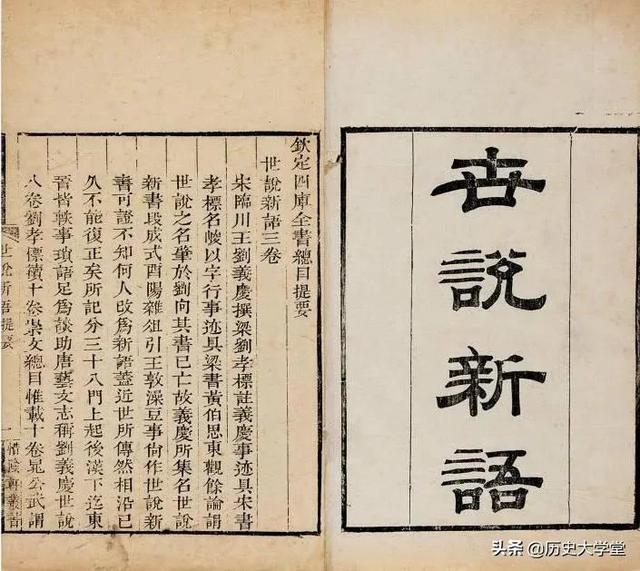 世說新語
欽定四庫全書總目提要
世說新語三卷
宋臨川王劉義慶撰梁劉孝標註義慶事迹具宋書
孝標名峻以字行事迹具梁書黃伯思東觀餘論謂
世說之名肇於劉向其書已亡故義慶所集名世說
新書段成式酉陽雜俎引王敦澡豆事尙作世說新
書可證不知何人改爲新語蓋近世所傳然相沿已
久不能復正矣所記分三十八門上起後漢下迄東
晉皆軼事瑣語足爲談助唐藝文志稱劉義慶世說
八卷劉孝標續十卷崇文總目惟載十卷晁公武謂
世說新語提要
一
惜陰軒叢書
头条 @历史大学堂